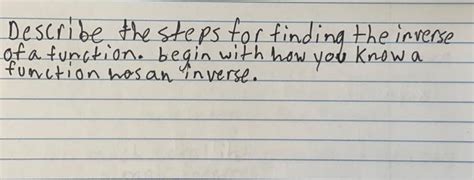 Describe the steps for finding the inverse
of a function. begin with how you know a
function has an inverse.